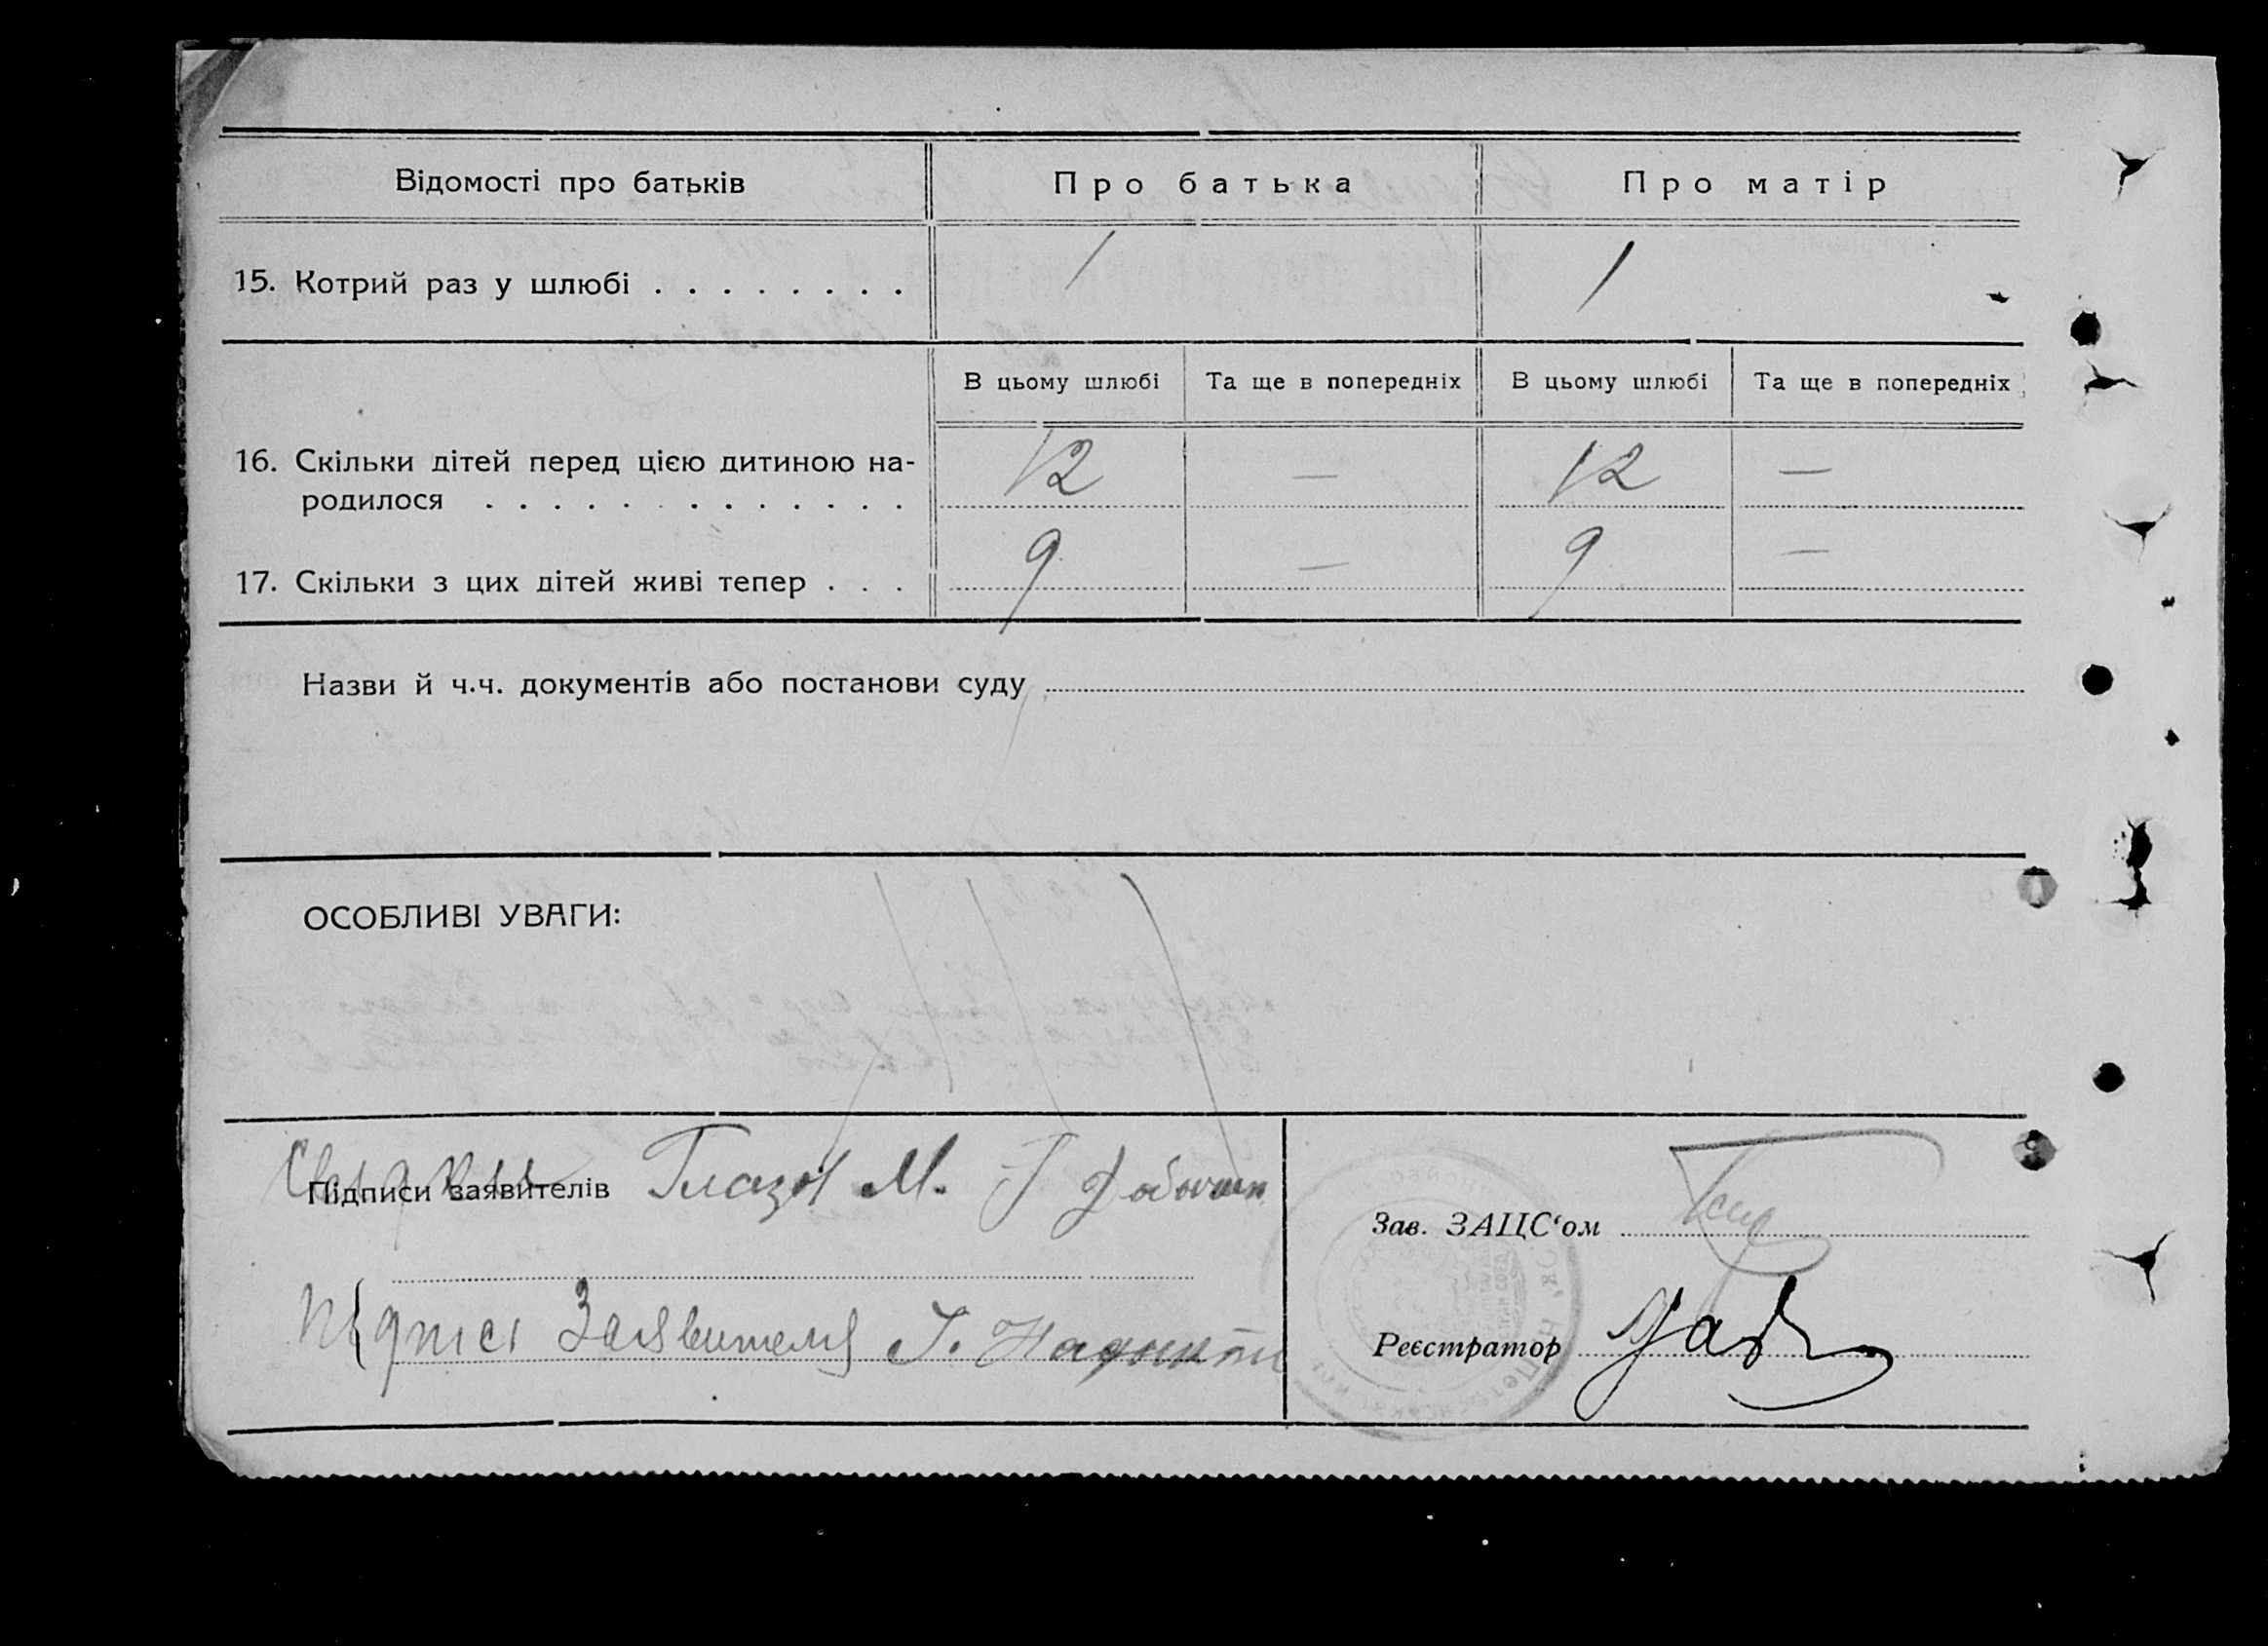 Відомості про батьків
Про батька
Про матір
15. Котрий раз у шлюбі . . . . . . . .
1
1
В цьому шлюбі
Та ще в попередніх
В цьому шлюбі
Та ще в попередніх
16. Скільки дітей перед цією дитиною на-
родилося . . . . . . . . . . . . .
12
—
12
—
17. Скільки з цих дітей живі тепер . . .
9
—
9
—
Назви й ч.ч. документів або постанови суду
ОСОБЛИВІ УВАГИ:
Підписи заявителів
М.
Зав. ЗАЦС‘ом
Заявителя
Реєстратор